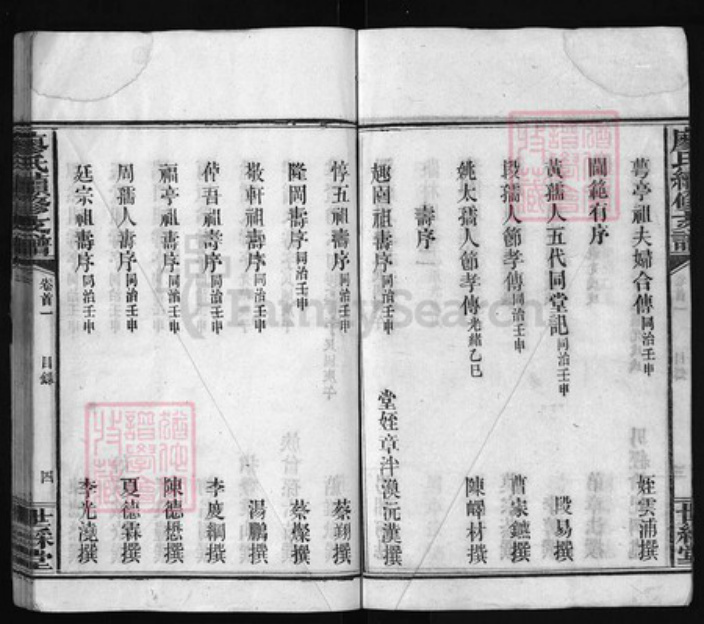 廖氏續修支譜
世綵堂
蕚亭祖夫婦合傳同治壬申 姪雲浦撰
閫範有序
黃孺人五代同堂記同治壬申 殷易撰
段孺人節孝傳同治壬申 曹家鑣撰
姚太孺人節孝傳光緒乙巳 陳嶧材撰
壽序一
趣園祖壽序同治壬申 堂姪章泮漢沅漢撰
惇五祖壽序同治壬申 蔡翊撰
隆岡壽序同治壬申 蔡燦撰
敬軒祖壽序同治壬申 湯鵬撰
仲吾祖壽序同治壬申 李度綱撰
福亭祖壽序同治壬申 陳德懋撰
周孺人壽序同治壬申 夏德霖撰
廷宗祖壽序同治壬申 李光澆撰
廖氏續修支譜 卷首一 目錄 四 世綵堂
FamilySearch